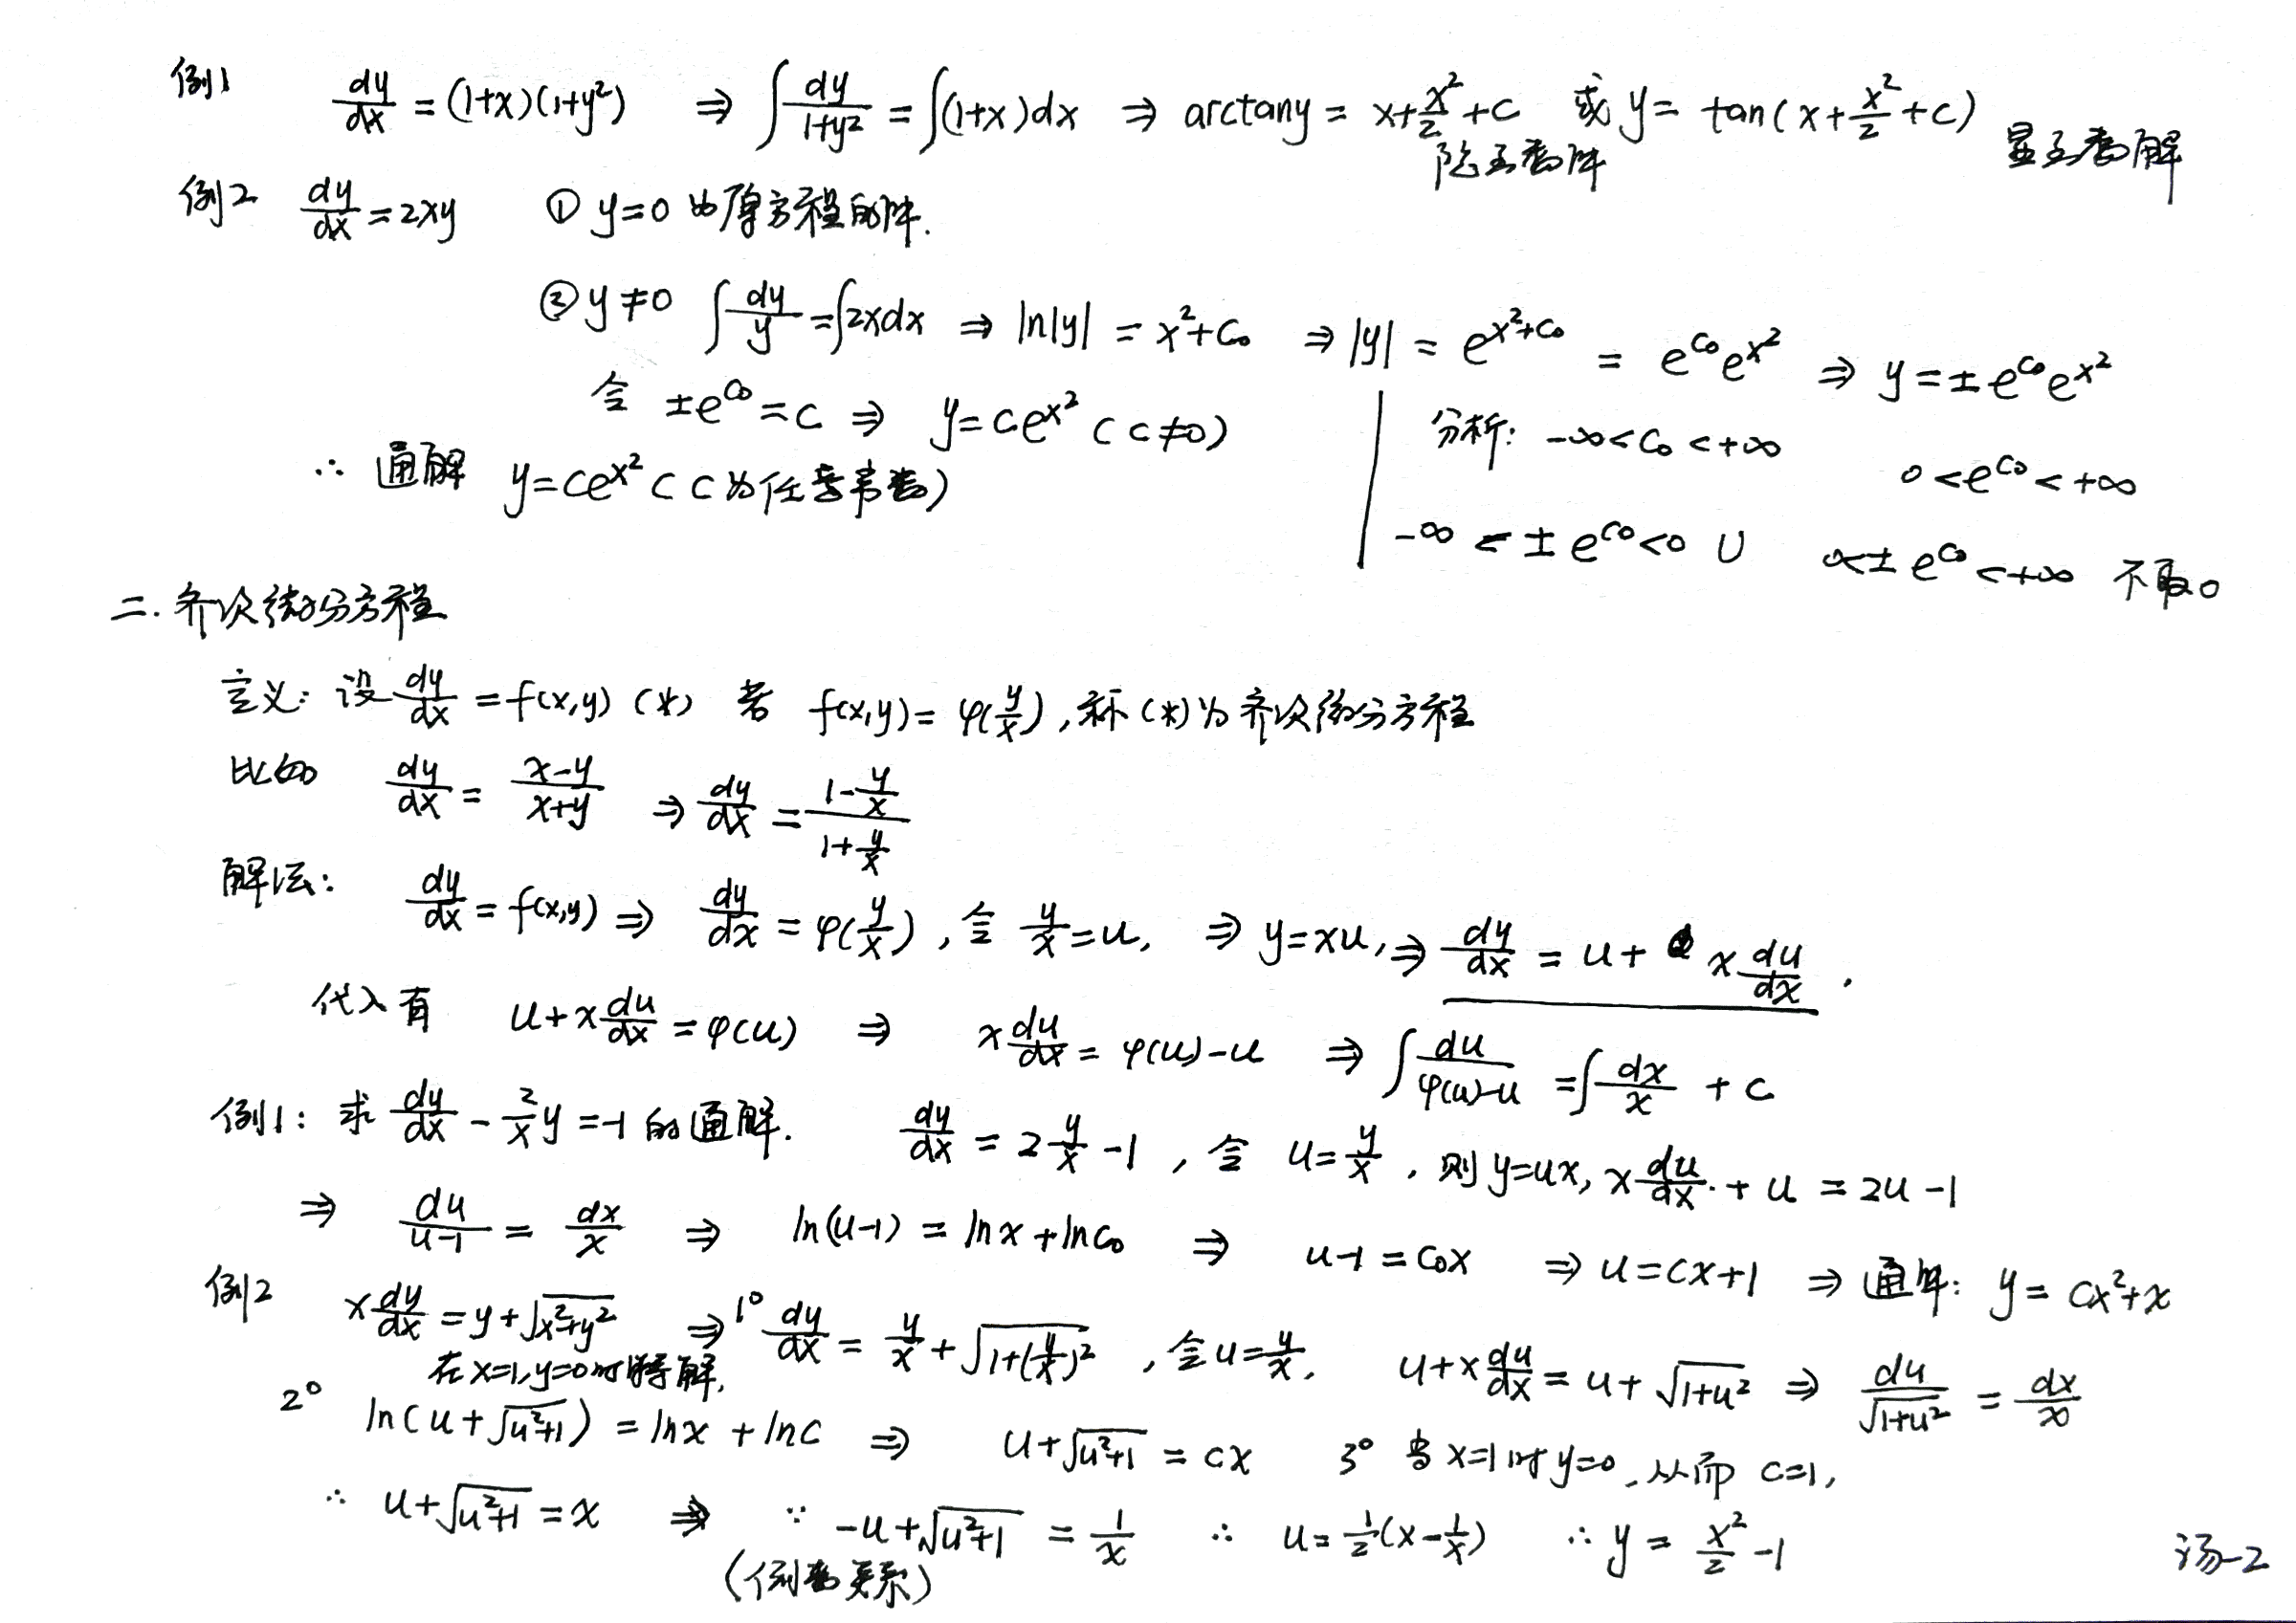 例1 dy/dx = (1+x)(1+y²) ⇒ ∫dy/(1+y²) = ∫(1+x)dx ⇒ arctany = x+x²/2+c 或 y= tan(x+x²/2+c)
隐函数解 显函数解
例2 dy/dx = 2xy ① y=0 为原方程的解.
② y≠0 ∫dy/y = ∫2xdx ⇒ ln|y| = x²+C₀ ⇒ |y| = e^(x²+C₀) = e^(C₀)e^(x²) ⇒ y=±e^(C₀)e^(x²)
令 ±e^(C₀) = C ⇒ y=ce^(x²) (c≠0) 分析: -∞<C₀<+∞ 0<e^(C₀)<+∞
∴ 通解 y=ce^(x²) (C为任意常数) -∞ < ±e^(C₀)<0 ∪ 0<±e^(C₀)<+∞ 不取0
二. 齐次微分方程
定义: 设 dy/dx = f(x,y) (*) 若 f(x,y)= φ(y/x), 称(*)为齐次微分方程
比如 dy/dx = (x-y)/(x+y) ⇒ dy/dx = (1-y/x)/(1+y/x)
解法: dy/dx = f(x,y) ⇒ dy/dx = φ(y/x), 令 y/x=u, ⇒ y=xu, ⇒ dy/dx = u+ x du/dx .
代入有 u+x du/dx = φ(u) ⇒ x du/dx = φ(u)-u ⇒ ∫du/(φ(u)-u) = ∫dx/x + c
例1: 求 dy/dx - (2/x)y = -1 的通解. dy/dx = 2 y/x -1 , 令 u=y/x , 则 y=ux, x du/dx + u = 2u-1
⇒ du/(u-1) = dx/x ⇒ ln(u-1) = lnx+lnC₀ ⇒ u-1 = C₀x ⇒ u=cx+1 ⇒ 通解: y= cx²+x
例2 x dy/dx = y+√(x²+y²) ⇒ 1° dy/dx = y/x + √(1+(y/x)²) , 令u=y/x, u+x du/dx = u+√(1+u²) ⇒ du/√(1+u²) = dx/x
在x=1,y=0时特解,
2° ln(u+√(u²+1)) = lnx + lnc ⇒ u+√(u²+1) = cx 3° 当x=1时y=0, 从而 c=1,
∴ u+√(u²+1) = x ⇒ ∵ -u+√(u²+1) = 1/x ∴ u=1/2(x-1/x) ∴ y = x²/2 -1
(倒数关系)
汤-2